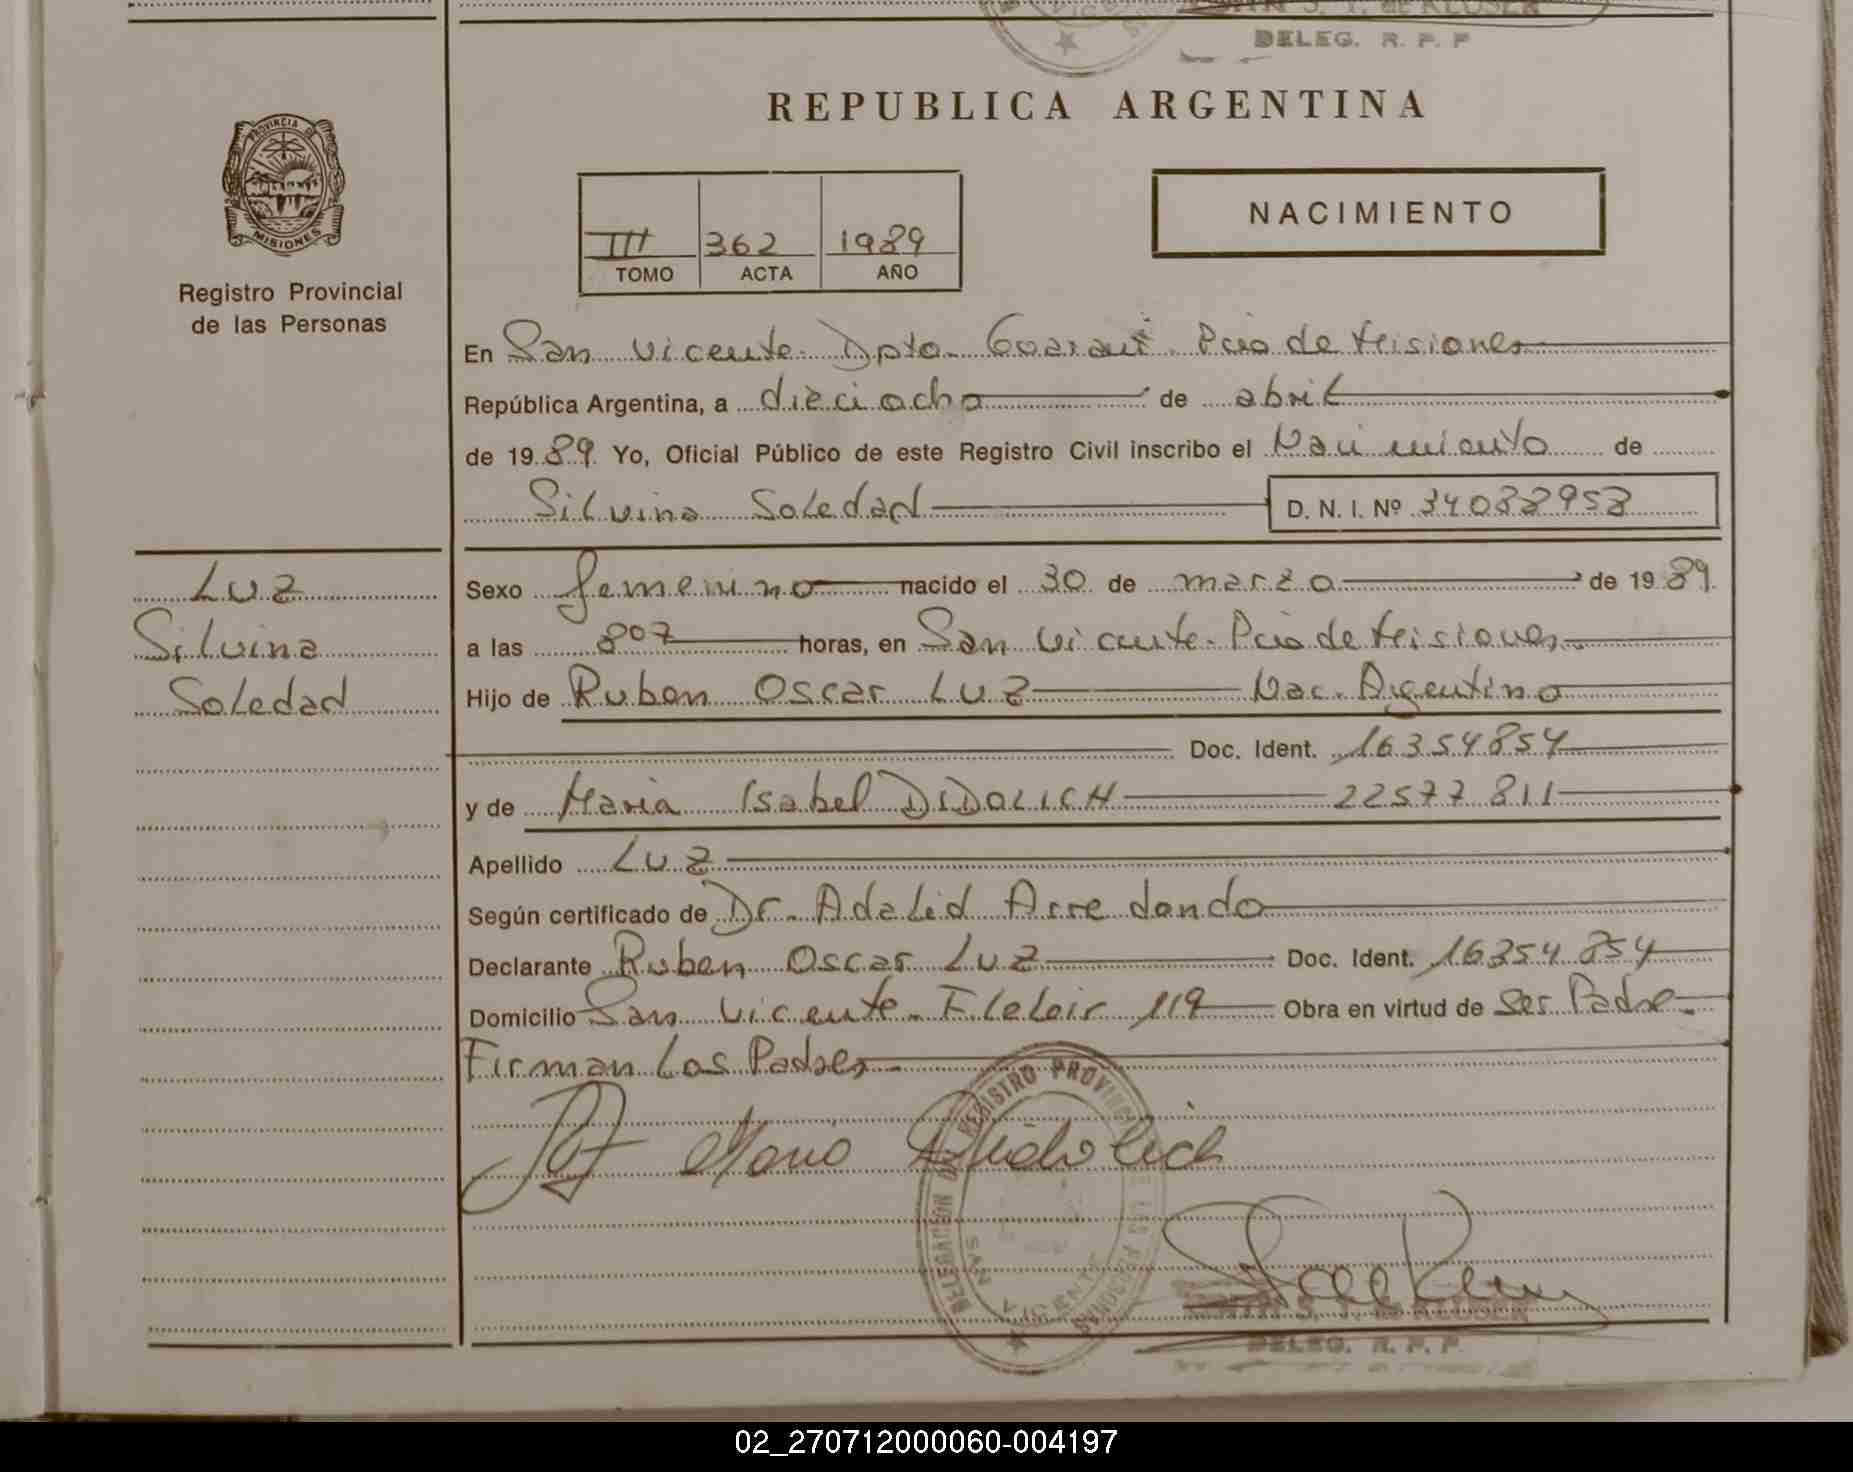 DELEG. R. P. P
REPUBLICA ARGENTINA
PROVINCIA DE
MISIONES
Registro Provincial
de las Personas
III 362 1989
TOMO ACTA AÑO
NACIMIENTO
En San Vicente. Dpto. Guaraní. Pcia de Misiones
República Argentina, a dieciocho de abril
de 1989. Yo, Oficial Público de este Registro Civil inscribo el Nacimiento de
Silvina Soledad D. N. I. Nº 34038953
Luz
Silvina
Soledad
Sexo femenino nacido el 30 de marzo de 1989.
a las 807 horas, en San Vicente. Pcia de Misiones
Hijo de Ruben Oscar Luz Nac. Argentino
Doc. Ident. 16354854
y de Maria Isabel DIDOLICH 22577811
Apellido Luz
Según certificado de Dr. Adalid Arredondo
Declarante Ruben Oscar Luz Doc. Ident. 16354854
Domicilio San Vicente. F. Leloir 119 Obra en virtud de Ser Padre
Firman los Padres
DELEGACION REGISTRO PROVINCIAL DE LAS PERSONAS
SAN VICENTE
S. T. de KLUSER
DELEG. R. P. P
02_270712000060-004197